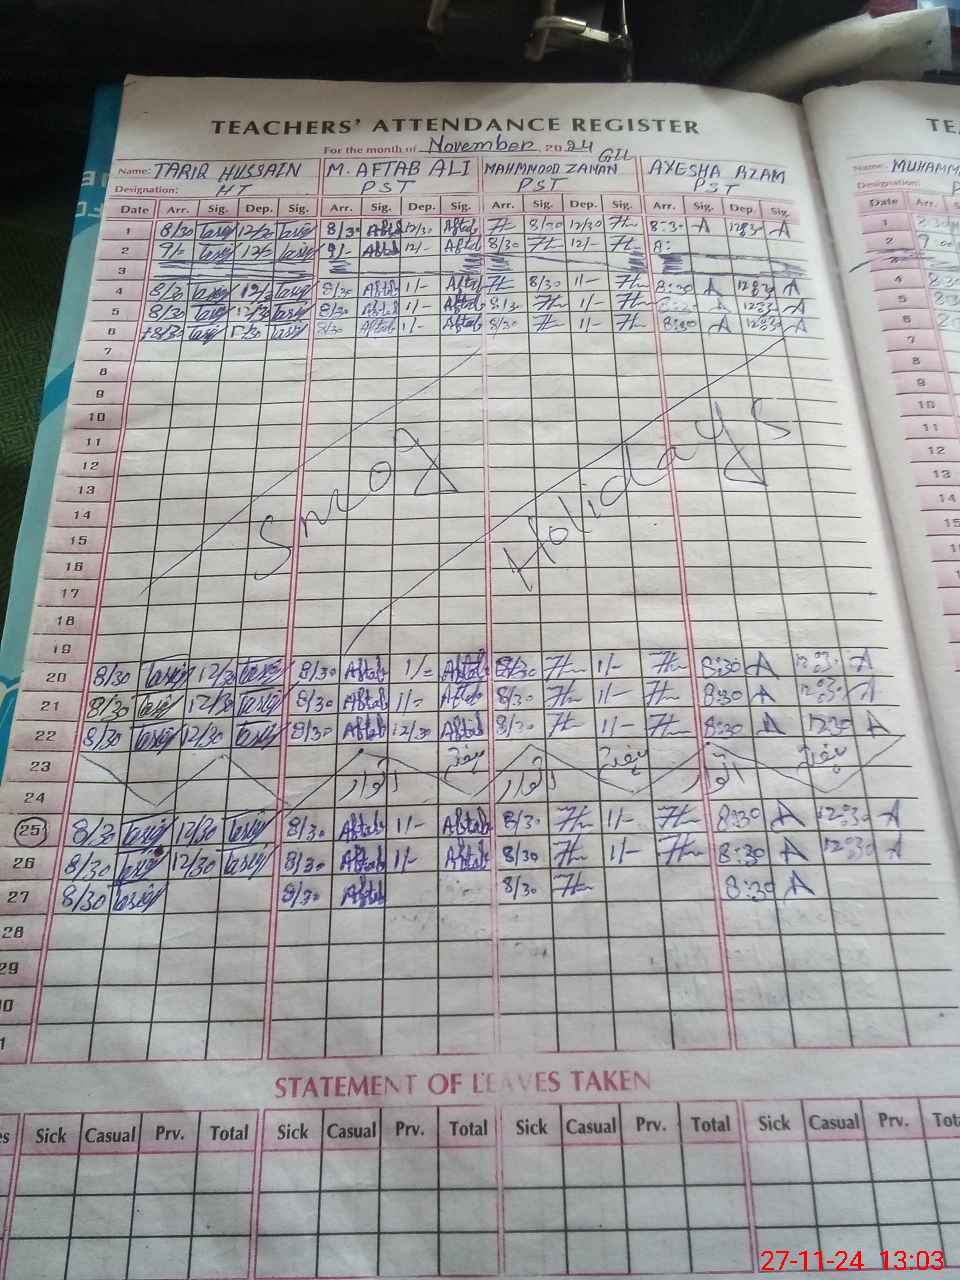 TEACHERS' ATTENDANCE REGISTER
For the month of November 2024
Name: TARIQ HUSSAIN M. AFTAB ALI MAHMMOOD ZAMAN GILL AYESHA AZAM
Designation: HT PST PST PST
Date Arr. Sig. Dep. Sig. Arr. Sig. Dep. Sig. Arr. Sig. Dep. Sig. Arr. Sig. Dep. Sig.
1 8/30 Tariq 12/30 Tariq 8/30 Aftab 12/30 Aftab 8/30 12/30 8:30 A 12:30 A
2 9/- Tariq 12/- Tariq 9/- Aftab 12/- Aftab 8/30 12/-
3
4 8/30 Tariq 12/30 Tariq 8/30 Aftab 1/- Aftab 8/30 1/- 8:30 A 12:30 A
5 8/30 Tariq 12/30 Tariq 8/30 Aftab 1/- Aftab 1/- A 12:30 A
6 8/30 Tariq 12/30 Tariq 8/30 Aftab 1/- Aftab 8/30 1/- 8:30 A 12:30 A
7
8
9
10
11
12
13
14
15
16
17
18
19
Smog Holidays
20 8/30 Tariq 12/30 Tariq 8/30 Aftab 1/- Aftab 8/30 1/- 8:30 A 12:30 A
21 8/30 Tariq 12/30 Tariq 8/30 Aftab 1/- Aftab 8/30 1/- 8:30 A 12:30 A
22 8/30 Tariq 12/30 Tariq 8/30 Aftab 12/30 Aftab 8/30 1/- 8:30 A 12:30 A
23 ہفتہ ہفتہ ہفتہ
24 اتوار اتوار اتوار
25 8/30 Tariq 12/30 Tariq 8/30 Aftab 1/- Aftab 8/30 1/- 8:30 A 12:30 A
26 8/30 Tariq 12/30 Tariq 8/30 Aftab 1/- Aftab 8/30 1/- 8:30 A 12:30 A
27 8/30 Tariq 8/30 Aftab 8/30 8:30 A
28
29
STATEMENT OF LEAVES TAKEN
Sick Casual Prv. Total Sick Casual Prv. Total Sick Casual Prv. Total Sick Casual Prv.
27-11-24 13:03